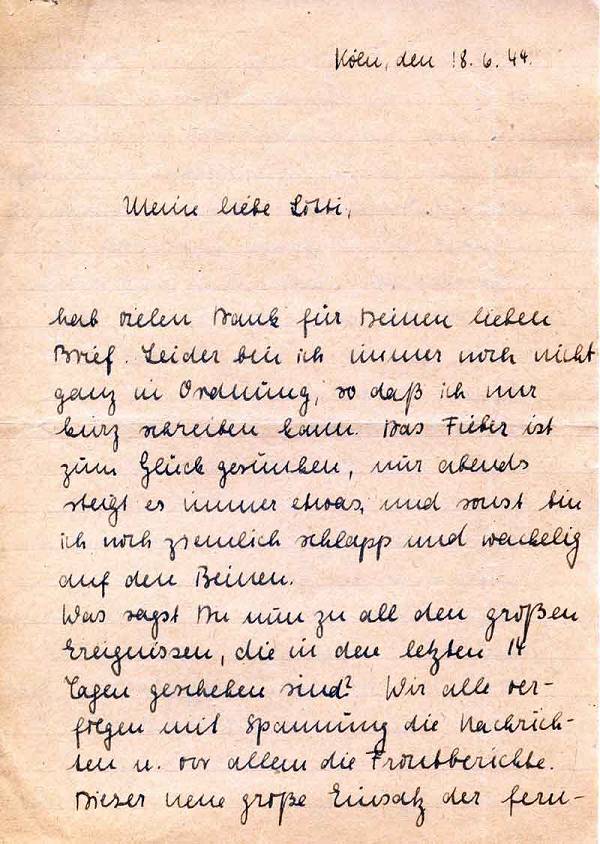 Köln, den 18.6.44.
Meine liebe Lotti,
hab vielen Dank für Deinen lieben
Brief. Leider bin ich immer noch nicht
ganz in Ordnung, so daß ich nur
kurz schreiben kann. Das Fieber ist
zum Glück gesunken, nur abends
steigt es immer etwas, und sonst bin
ich noch ziemlich schlapp und wackelig
auf den Beinen.
Was sagst Du nun zu all den großen
Ereignissen, die in den letzten 14
Tagen geschehen sind? Wir alle ver-
folgen mit Spannung die Nachrich-
ten u. vor allem die Frontberichte.
Dieser neue große Einsatz der fern-